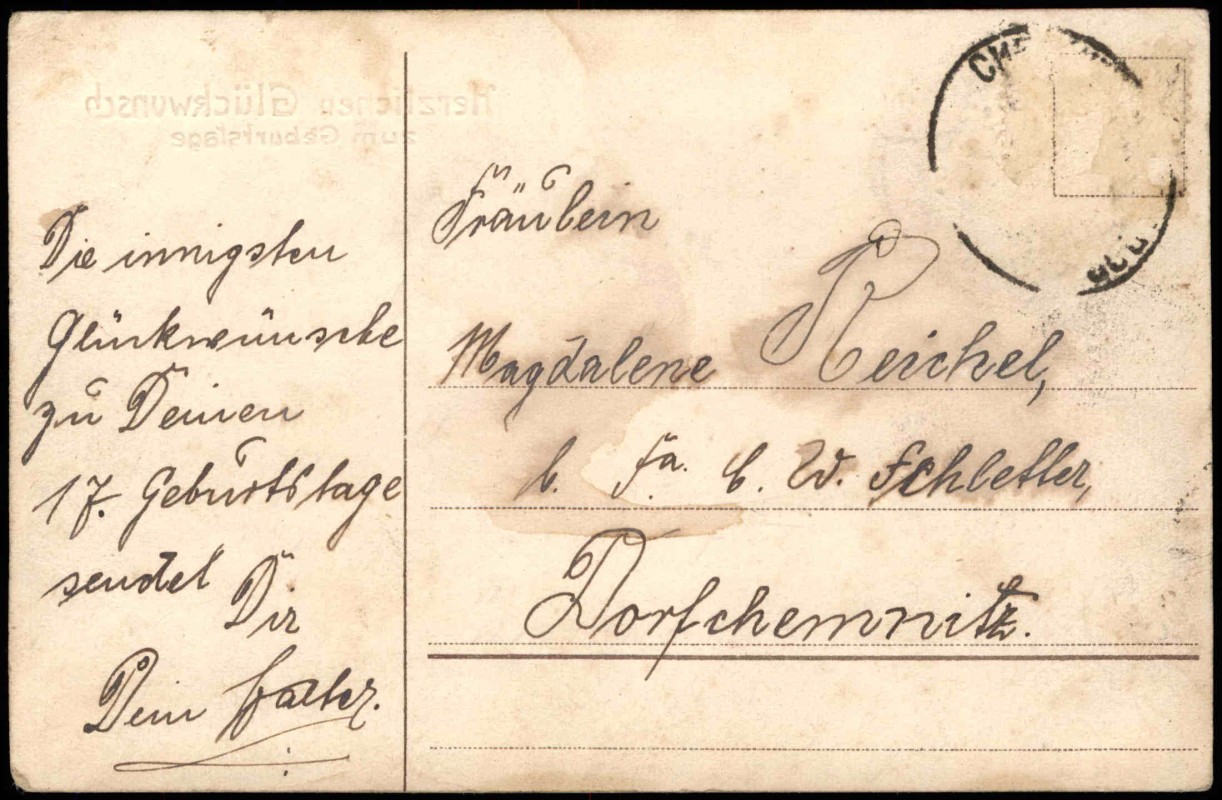 Herzlichen Glückwunsch
zum Geburtstage
Die innigsten
Glückwünsche
zu Deinen
17. Geburtstage
sendet Dir
Dein Walter.
Fräulein
Magdalene Reichel,
b. Fa. C. W. Schletter,
Dorfchemnitz.